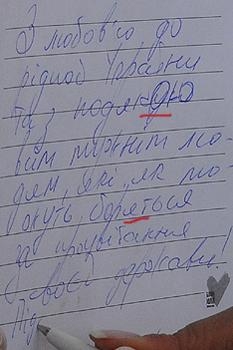 З любов'ю до
рідної України
та з подякою
всім мужнім лю-
дям, які, як мо-
жуть, боряться
за процвітання
своєї держави!
Під